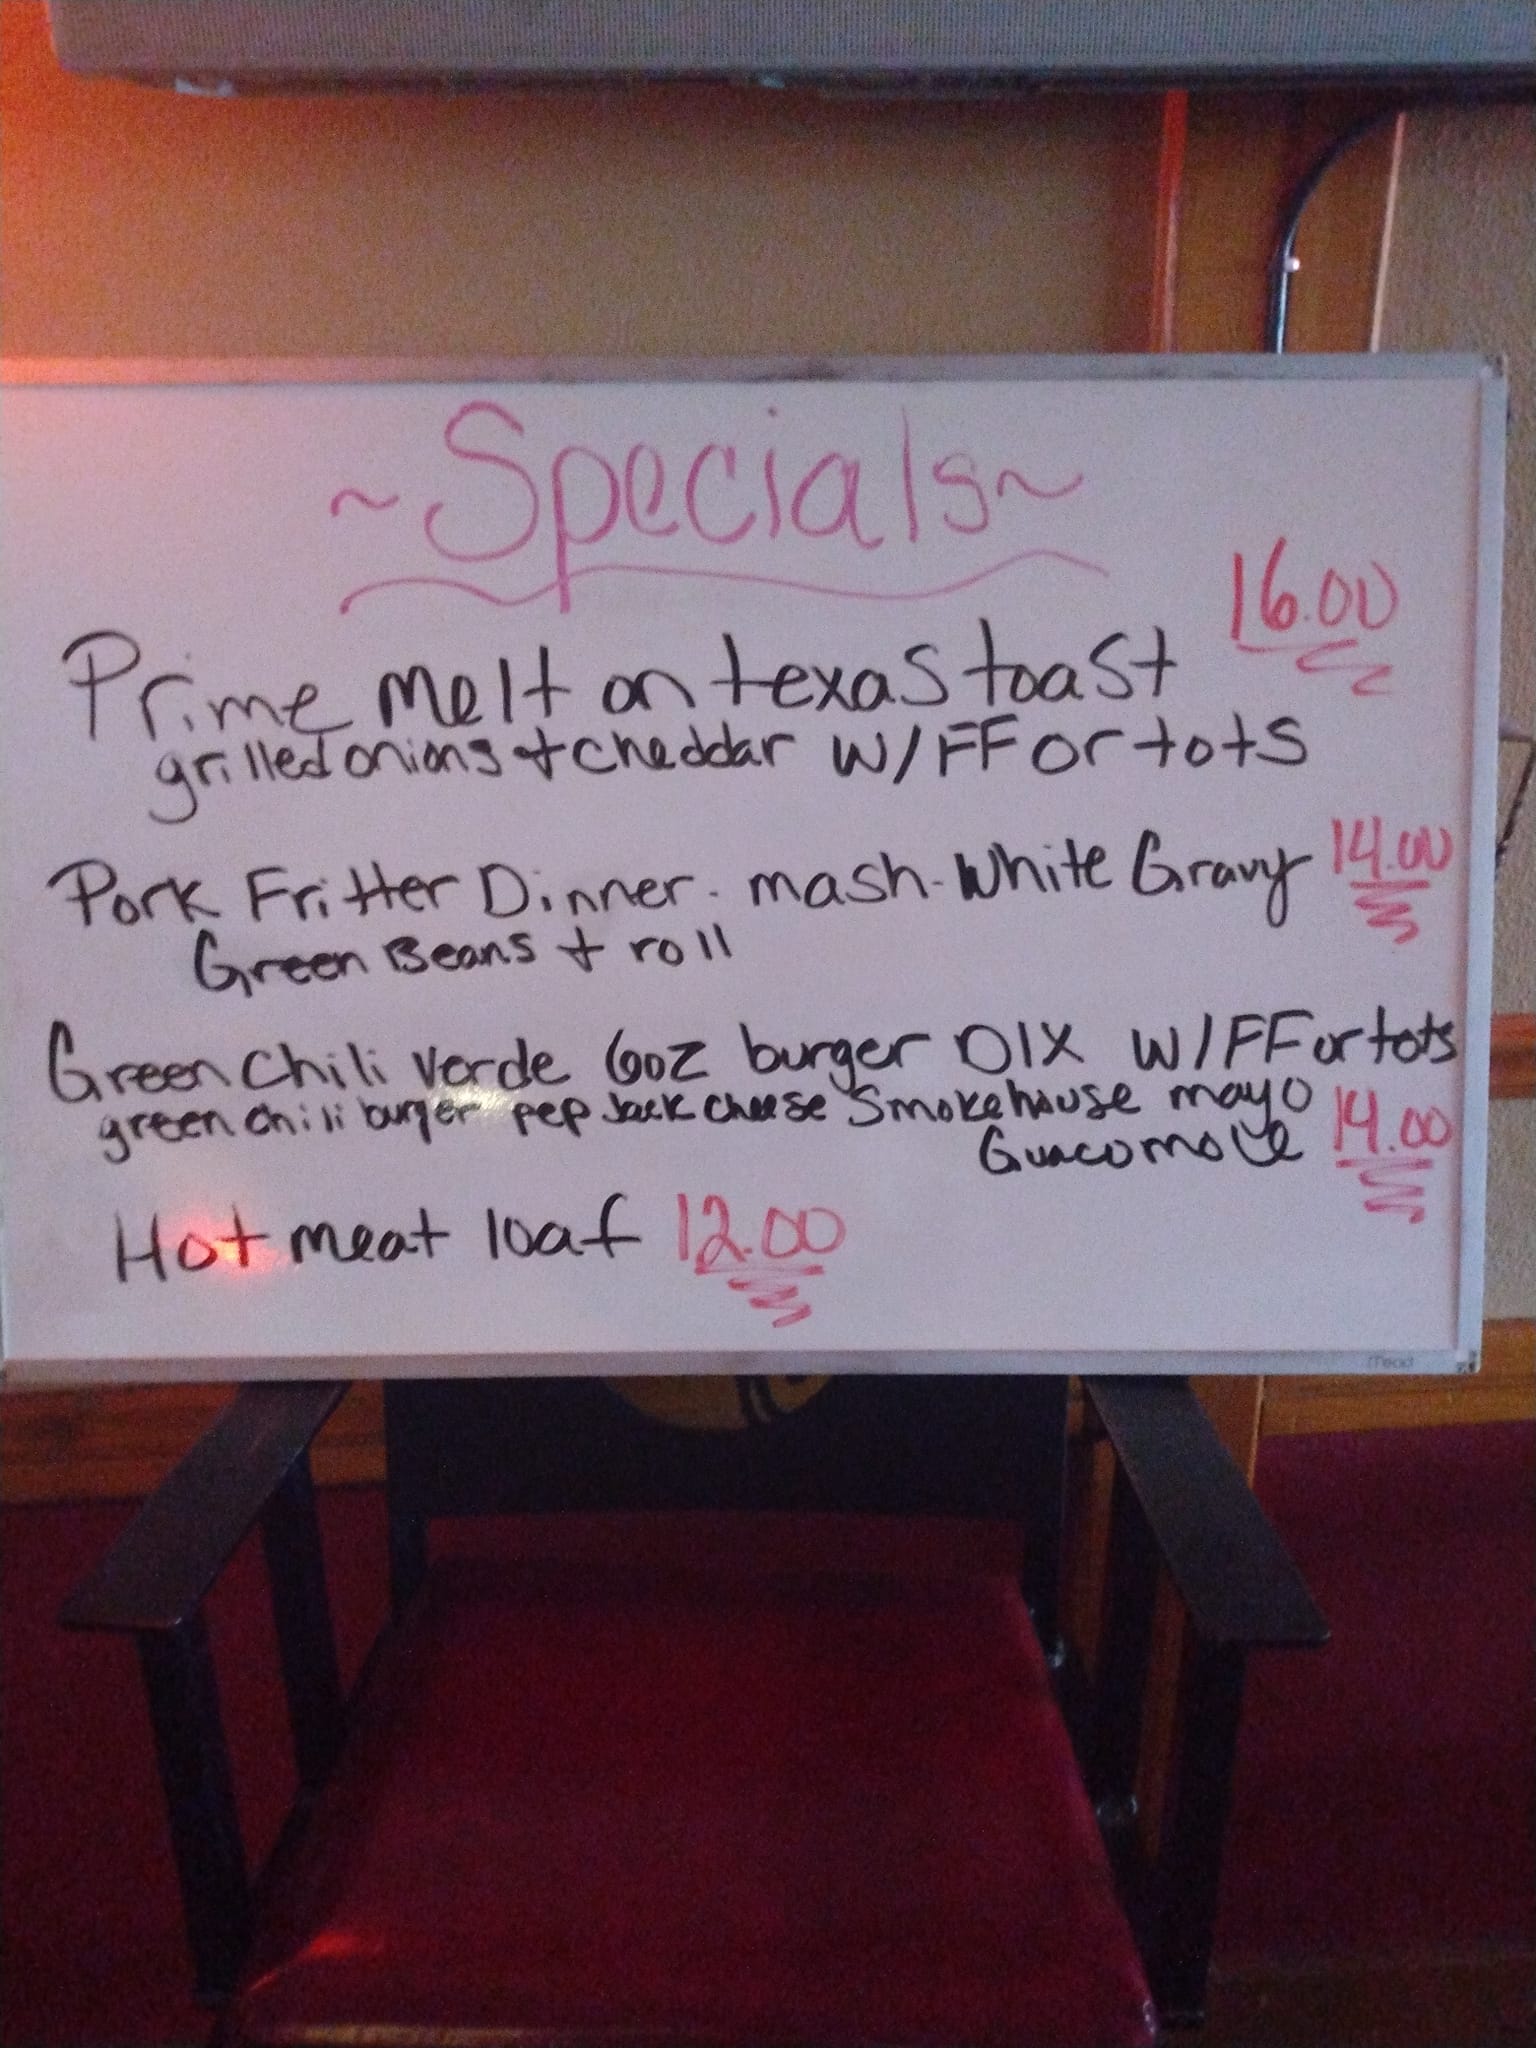 ~Specials~
16.00
Prime melt on texas toast
grilled onions + cheddar w/FF or tots
Pork Fritter Dinner - mash - White Gravy 14.00
Green Beans + roll
Green Chili Verde 6oz burger DLX w/FF or tots
green chili burger pep Jack cheese Smokehouse mayo
Guacomole 14.00
Hot meat loaf 12.00
Mead